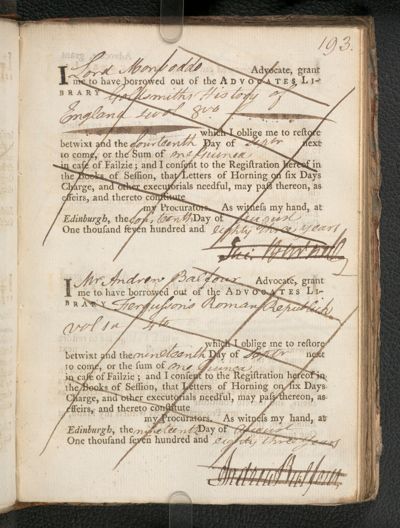 193.
I Lord Monboddo Advocate, grant
me to have borrowed out of the ADVOCATES LI-
BRARY Goldsmiths History of
England 8vo
which I oblige me to restore
betwixt and the fourteenth Day of Septr next
to come, or the Sum of one Guinea
in case of Failzie; and I consent to the Registration hereof in
the Books of Session, that Letters of Horning on six Days
Charge, and other executorials needful, may pass thereon, as
effeirs, and thereto constitute
my Procurators. As witness my hand, at
Edinburgh, the Day of August
One thousand seven hundred and eighty three years
I Mr Andrew Balfour Advocate, grant
me to have borrowed out of the ADVOCATES LI-
BRARY Fergussons Roman Republick
vol 1st 4to
which I oblige me to restore
betwixt and the nineteenth Day of Septr next
to come, or the sum of one guinea
in case of Failzie; and I consent to the Registration hereof in
the Books of Session, that Letters of Horning on six Days
Charge, and other executorials needful, may pass thereon, as
effeirs, and thereto constitute
my Procurators. As witness my hand, at
Edinburgh, the nineteenth Day of August
One thousand seven hundred and eighty three years
Andrew Balfour